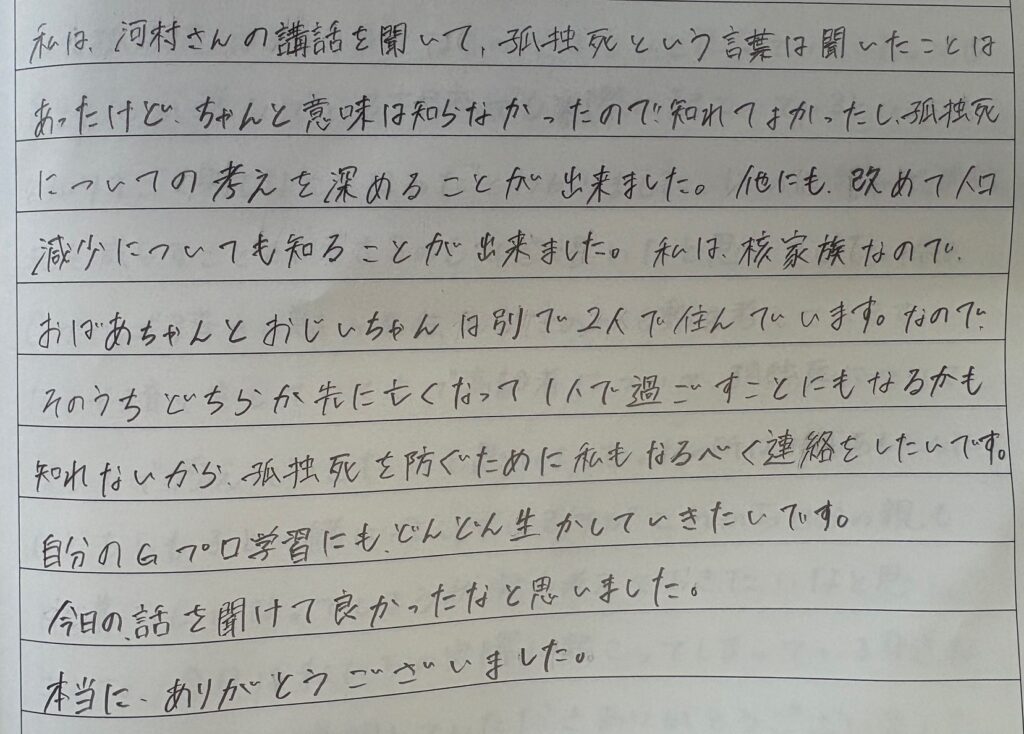 私は、河村さんの講話を聞いて、孤独死という言葉は聞いたことは
あったけど、ちゃんと意味は知らなかったので知れてよかったし、孤独死
についての考えを深めることが出来ました。他にも、改めて人口
減少についても知ることが出来ました。私は、核家族なので、
おばあちゃんとおじいちゃんは別で2人で住んでいます。なので、
そのうちどちらか先に亡くなって1人で過ごすことにもなるかも
知れないから、孤独死を防ぐために私もなるべく連絡をしたいです。
自分のGプロ学習にも、どんどん生かしていきたいです。
今日の、話を聞けて良かったなと思いました。
本当に、ありがとうございました。